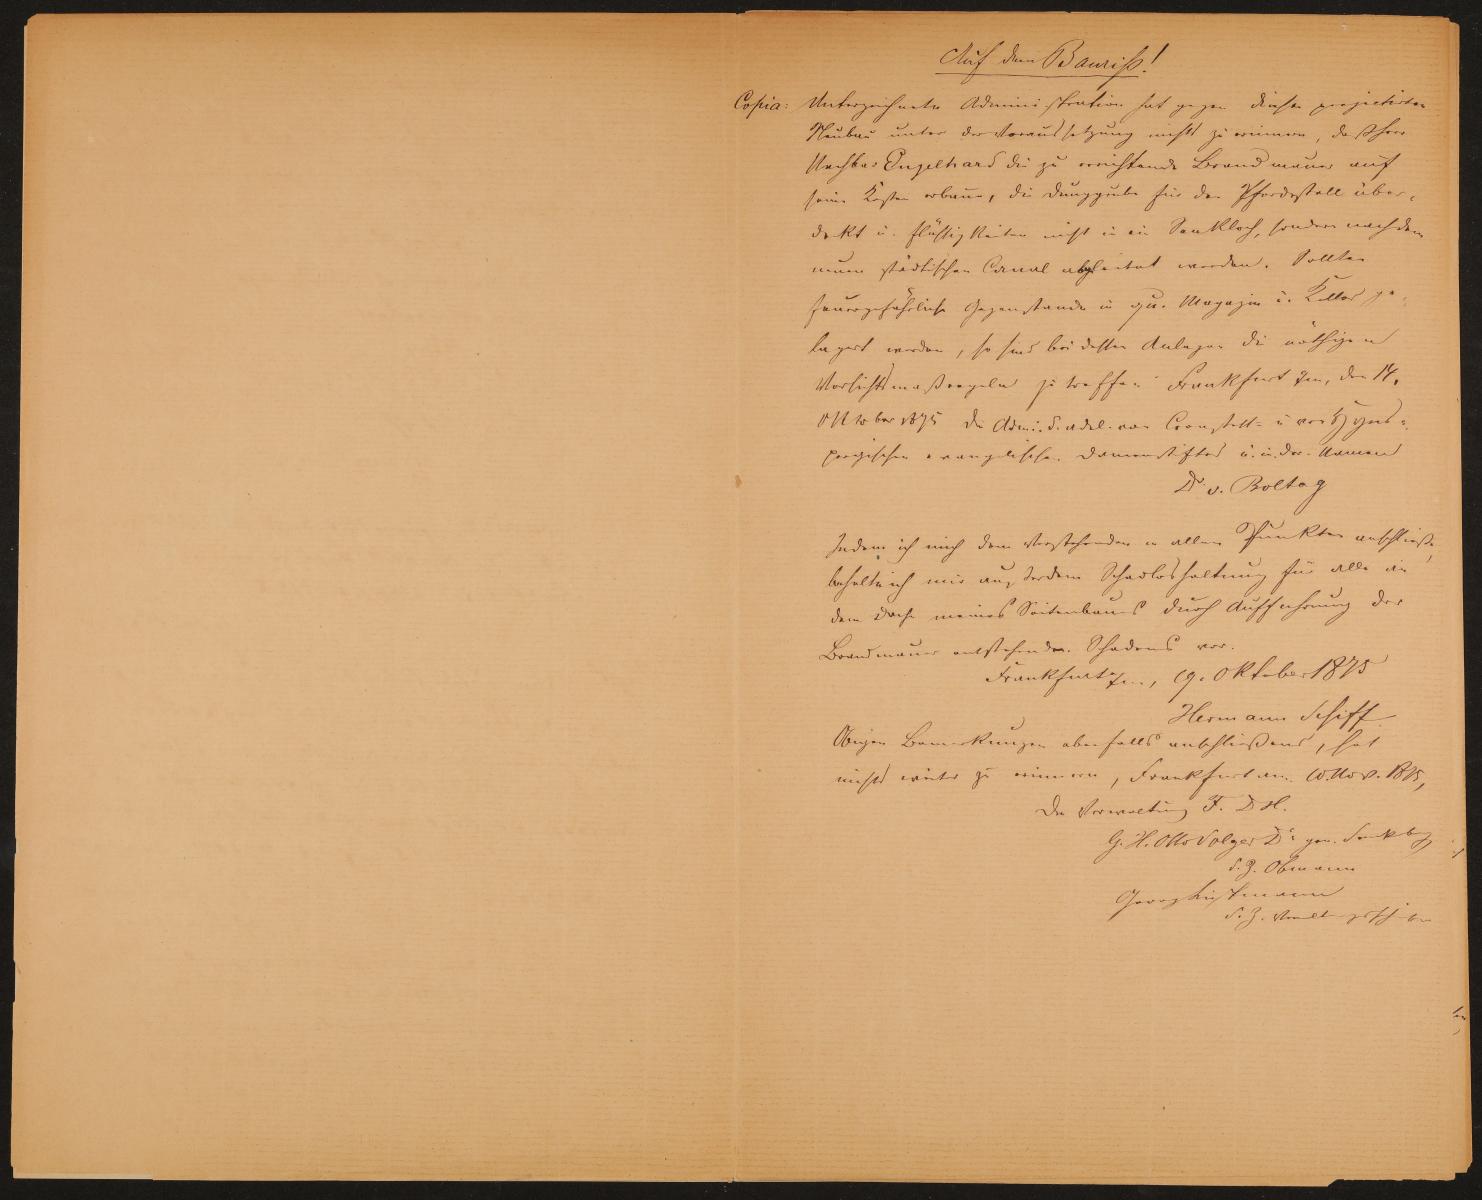 Auf dem Bauriß!
Copia: Unterzeichnete Administration hat gegen diesen projectirten
Neubau unter der Voraussetzung nichts zu erinnern, daß Herr
Nachbar Engelhard die zu errichtende Brandmauer auf
seine Kosten erbaue, die Dunggrube für den Pferdestall über-
dekt u. Flüßigkeiten nicht in ein Senkloch, sondern nach dem
neuen städtischen Canal abgeleitet werden. Sollten
feuergefährliche Gegenstände in qu. Magazin u. Keller ge-
lagert werden, so sind bei deßen Anlagen die nöthigen
Vorsichtsmaßregeln zu treffen Frankfurt a/m, den 14.
Oktober 1875 Die Admi. d. adel. von Cronstett- u von Hyns-
pergischen evangelischen Damenstiftes u. in der. Namen
Dr v.
Indem ich mich dem Vorstehenden in allen Punkten anschließe,
behalte ich mir außerdem Schadloshaltung für alle an
dem Dache meines Seitenbaues durch Aufführung der
Brandmauer entstehenden Schadens vor.
Frankfurt a/m, 19. Oktober 1875
Hermann Schiff
Obigen Bemerkungen ebenfalls anschließend, hat
nichts weiter zu erinnern, Frankfurt am 10. Nov. 1875,
Die Verwaltung F. D. H.
G. H. Otto Volger Dr gen. Senckenberg
d. Z. Obmann
Georg Listmann
d. Z. Verwaltungsschreiber